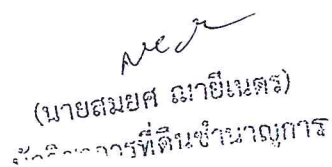 (นายสมยศ ฌายีเนตร)
นักวิชาการที่ดินชำนาญการ